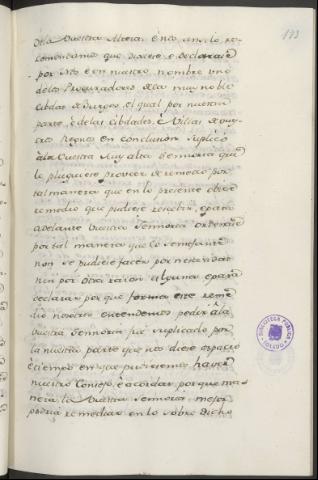 193
de la Vuestra Alteza, è no an lo re-
comendamos que dixiese, è declarase
por Nos è en nuestro nombre uno
de los Procuradores de la muy noble
Cibdat de Burgos, el qual por nuestra
parte, è de las Cibdades, è Villas de vues-
tros Regnos en conclusion suplicò
à la Vuestra muy alta Sennoria que
le pluguiese proveer de remedio por
tal manera que en lo presente obiese
remedio que pudiese, è para
adelante Vuestra Sennoria ordenase
por tal manera que lo semejante
non se pudiese facer por necesidat
nin por otra razon alguna, è para
declarar por que forma este reme-
dio nosotros entendemos poder, à la
Vuestra Sennoria fuè suplicado por
la nuestra parte que nos diese espacio
è tiempo en que pudiesemos haver
nuestro Consejo, è acordar por que ma-
nera la Vuestra Sennoria mejor
podria remediar en lo sobre dicho
BIBLIOTECA PUBLICA
TOLEDO